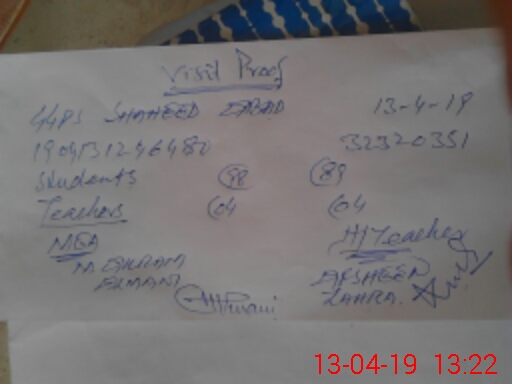 Visit Proof
GGPS SHAHEED ABAD 13-4-19
190413124648 32320351
Students 98 89
Teachers 04 04
MEA H/Teacher
M. EKRAM AFSHEEN
ZAHRA.
13-04-19 13:22